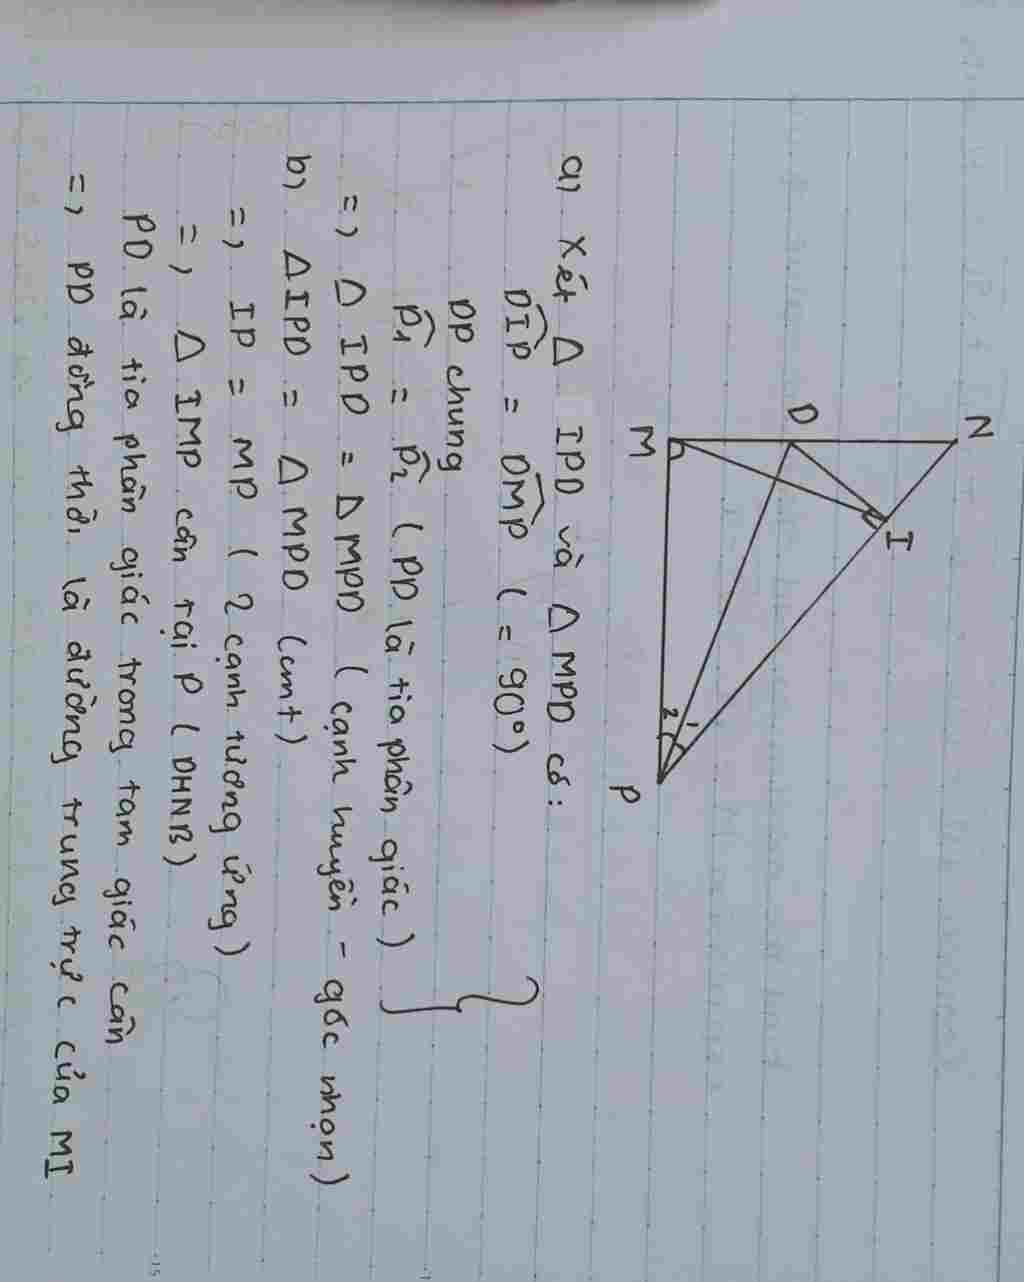 N
D
I
M
1
2
P
a, Xét Δ IPD và Δ MPD có:
DÎP = DM̂P ( = 90°)
DP chung
P̂1 = P̂2 ( PD là tia phân giác )
=, Δ IPD = Δ MPD ( cạnh huyền - góc nhọn )
b, ΔIPD = Δ MPD (cmt)
=, IP = MP ( 2 cạnh tương ứng )
=, Δ IMP cân tại P ( DHNB )
PD là tia phân giác trong tam giác cân
=, PD đồng thời là đường trung trực của MI